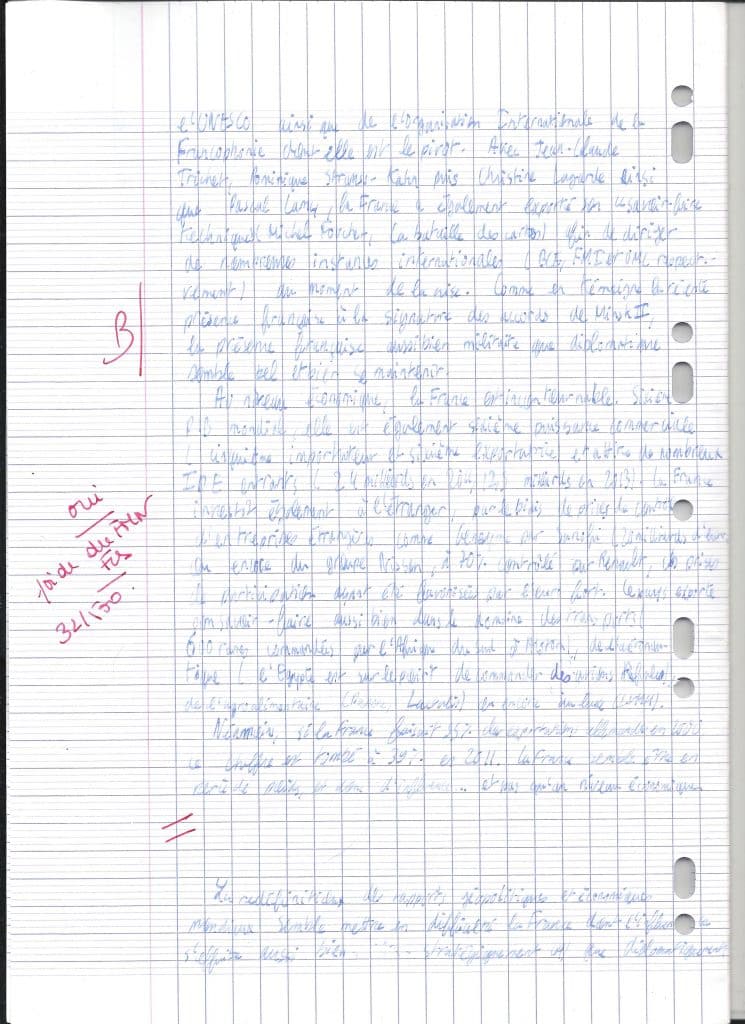 l'UNESCO ainsi que de l'Organisation Internationale de la
Francophonie dont elle est le pivot. Avec Jean-Claude
Trichet, Dominique Strauss-Kahn puis Christine Lagarde ainsi
que Pascal Lamy, la France a également exporté son savoir-faire
technique (Michel Foucher, La bataille des cartes) afin de diriger
de nombreuses instances internationales (BCE, FMI et OMC respecti-
vement) au moment de la crise. Comme en témoigne la récente
présence française à la signature des accords de Minsk II,
la présence française aussi bien militaire que diplomatique
semble bel et bien se maintenir.
B/
Au niveau économique, la France est incontournable. Sixième
PIB mondial, elle est également sixième puissance commerciale
(cinquième importateur et sixième exportatrice et attire de nombreux
IDE entrants ( milliards en 2013). La France
oui
investit également à l'étranger, par le biais de prises de contrôle
d'entreprises étrangères comme par Sanofi (20 milliards
ou encore du groupe Nissan, à 40% contrôlé par Renault, des prises
de participation ayant été favorisées par l'euro fort. Le pays exporte
32/130
son savoir-faire aussi bien dans le domaine des transports (
600 rames commandées par l'Afrique du sud à Alstom), de l'aéronau-
tique (l'Egypte est sur le point de commander des avions Rafale),
de l'agroalimentaire (Danone, Lactalis) ou encore du luxe (LVMH).
Néanmoins, si la France faisait % des exportations allemandes en
ce chiffre est tombé à 39% en 2011. La France semble être en
perte de poids et d'influence... et pas qu'au niveau économique.
La redéfinition des rapports géopolitiques et économiques
mondiaux semble mettre en difficulté la France dont l'influence
s'effrite aussi bien stratégiquement que diplomatiquement.